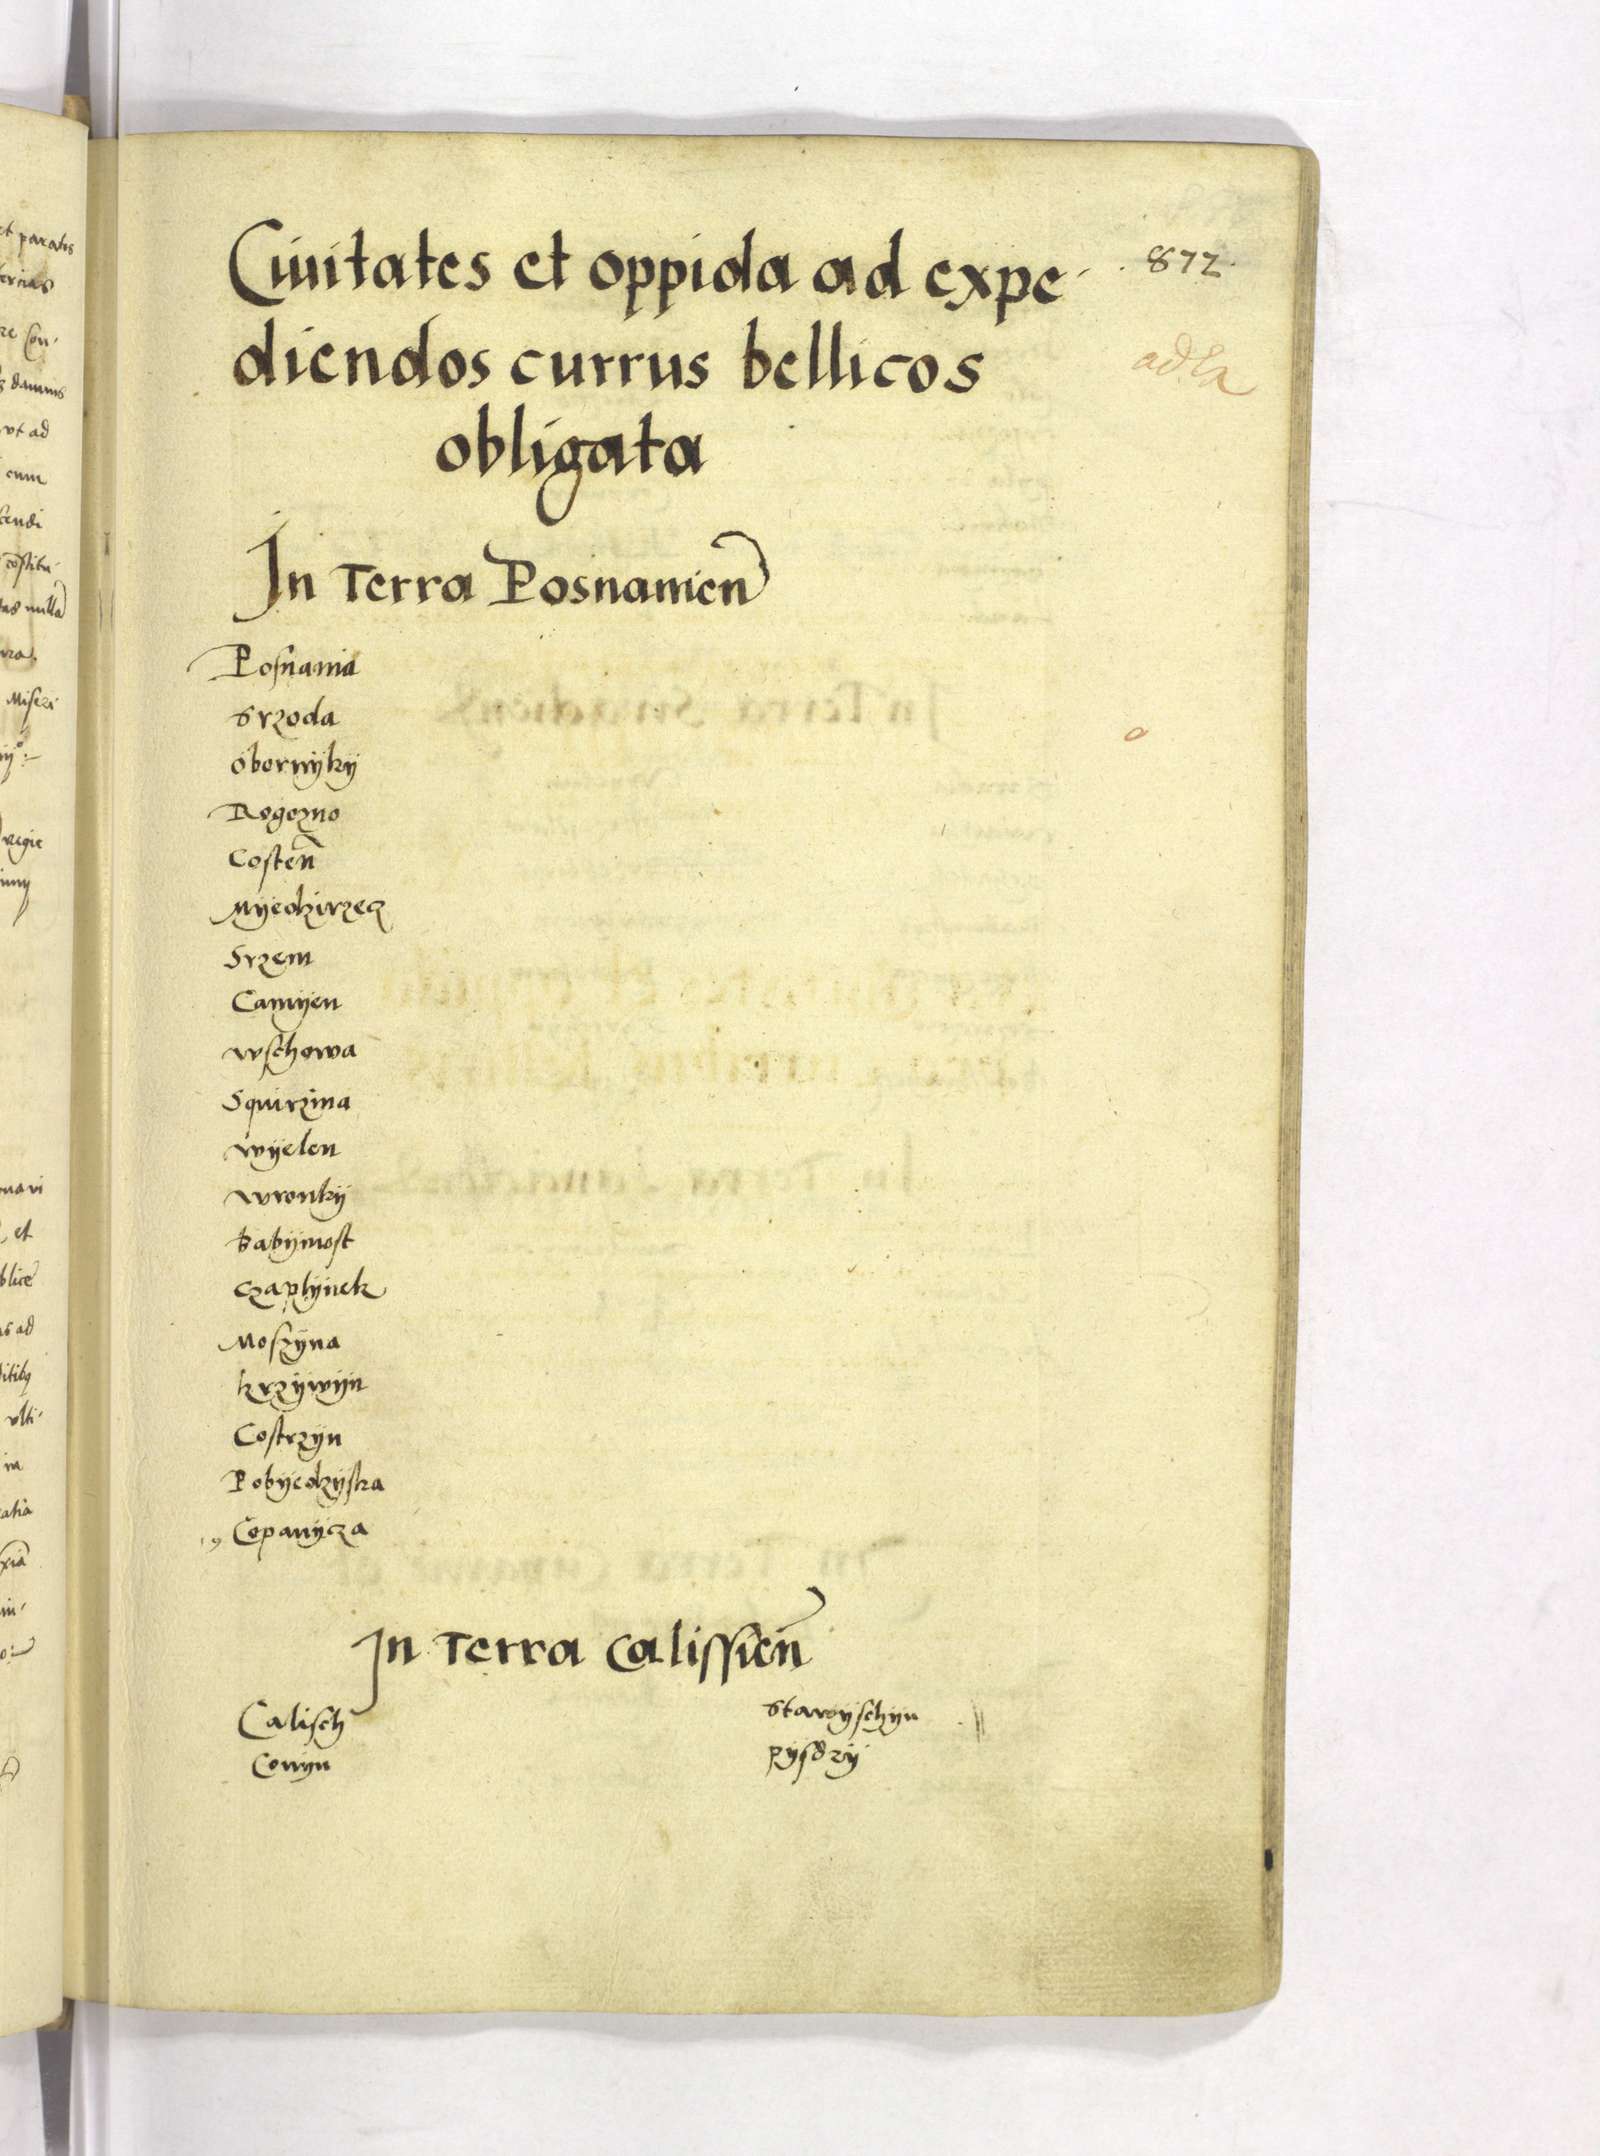 Ciuitates et oppida ad expe-
diendos currus bellicos
obligata
.872.
In Terra Posnanien
Posnania
Srzoda
obornÿkÿ
Rogozno
Costen
Mÿedzirzecz
Srzem
Camÿen
wschowa
Squirzina
wÿelen
wronkÿ
babÿmost
czaplÿnek
Moszÿna
krzÿwÿn
Costrzÿn
Pobÿedzÿska
Copanÿcza
In Terra Calissien
Calisch
Conÿn
Stawÿschÿn
pÿsdrÿ